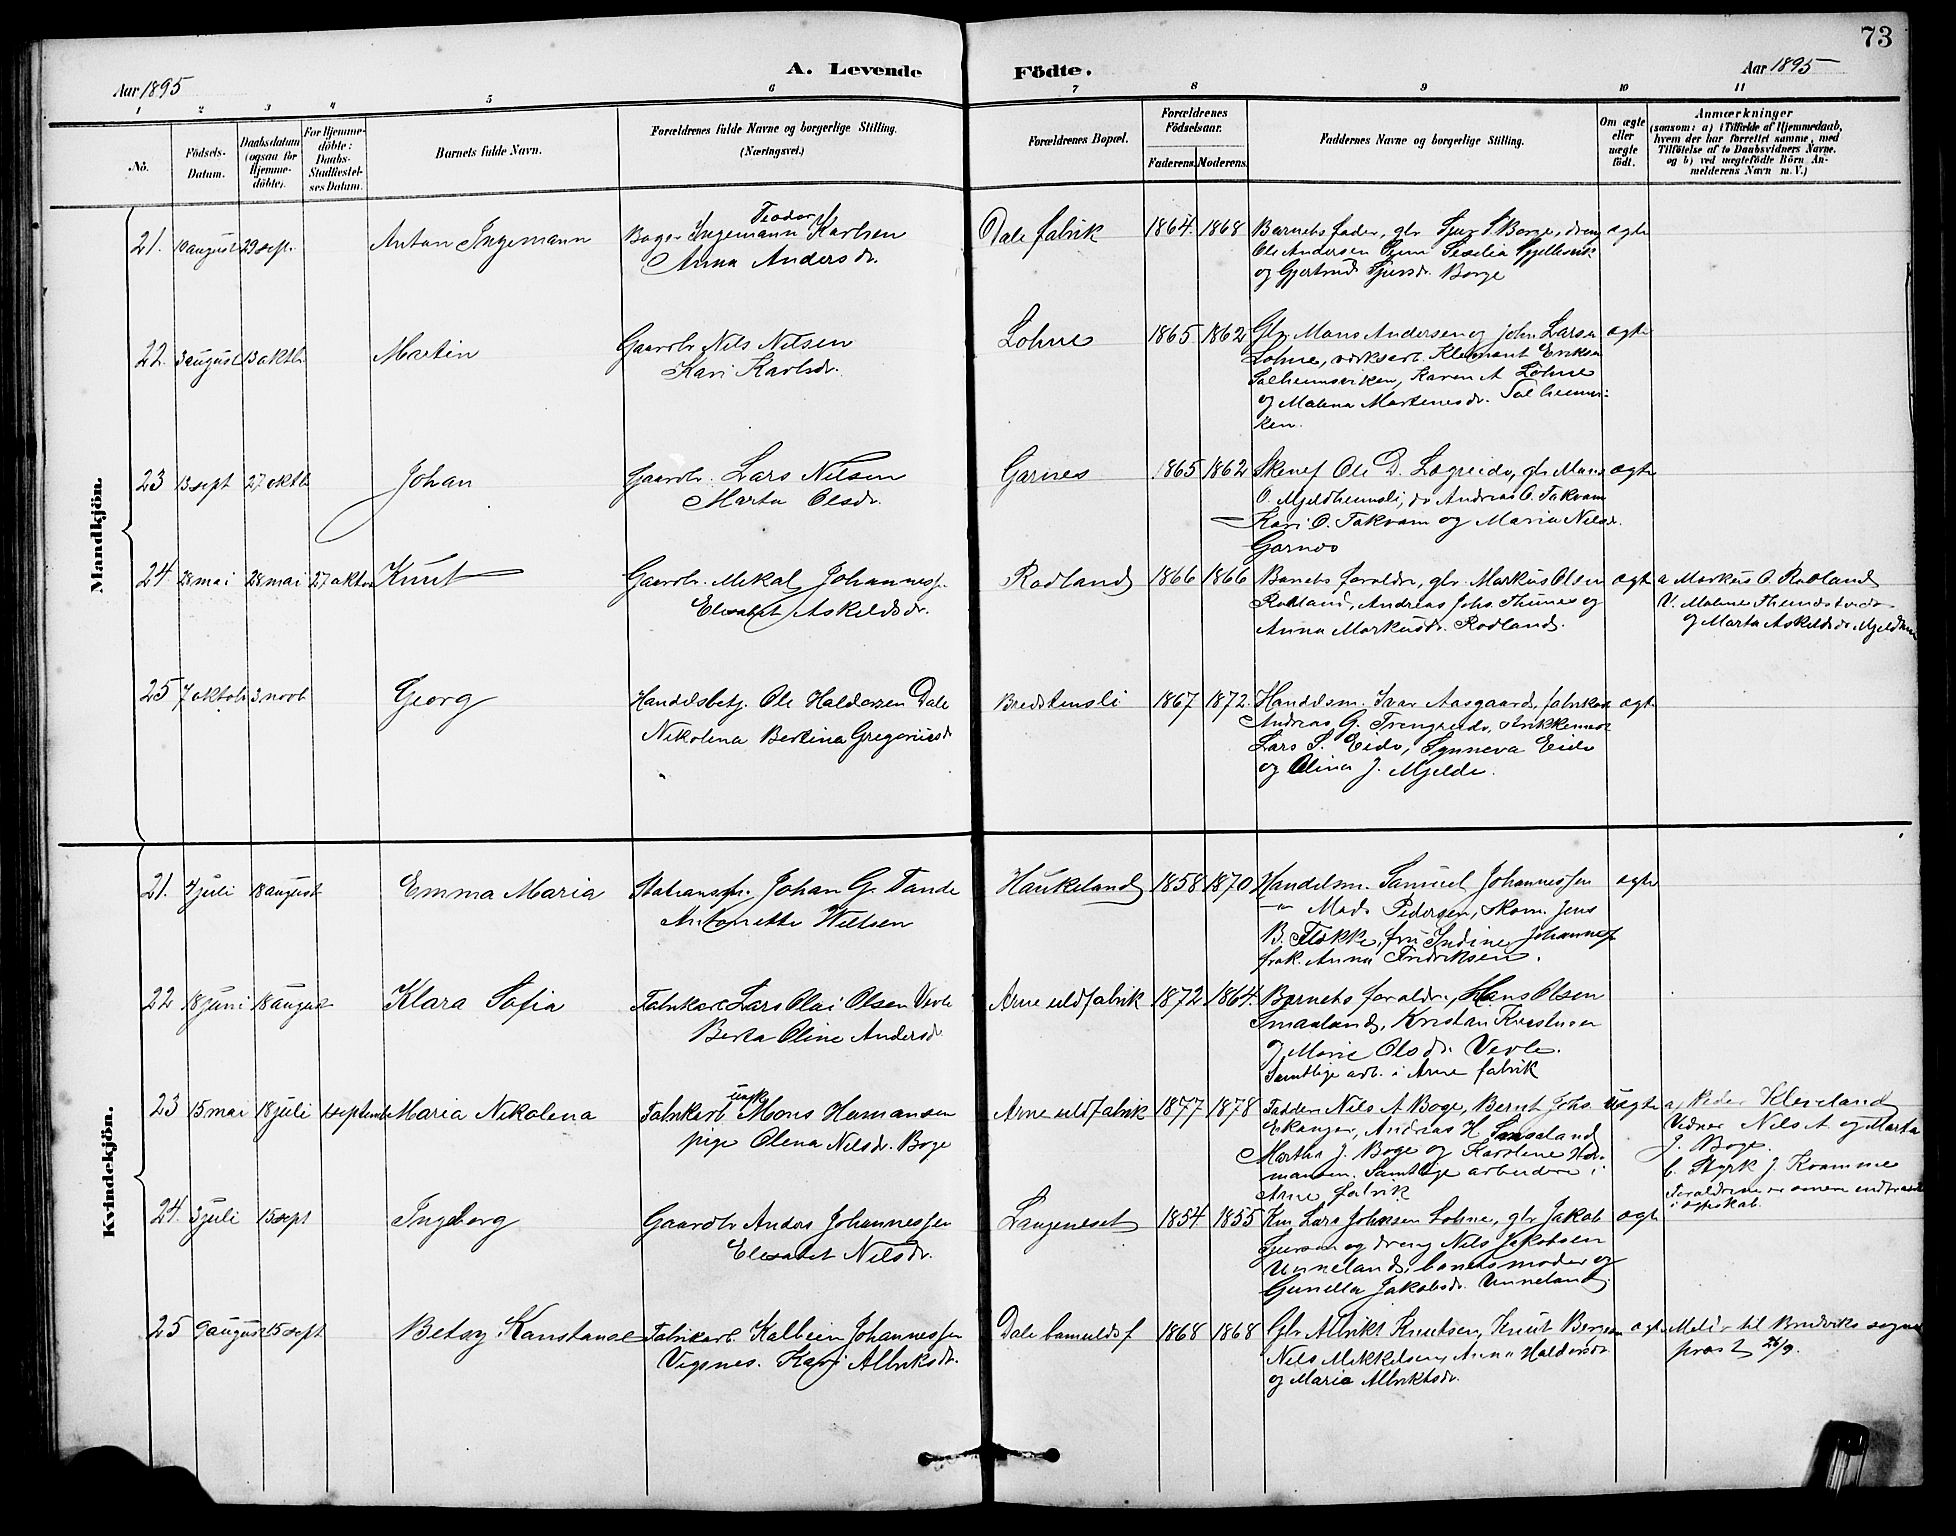 73
Aar 1895
A. Levende Födte.
Aar 1895
1 2 3 4 5 6 7 8 9 10 11
No.
Födsels-
Datum.
Daabsdatum
(ogsaa for
Hjemme-
döbte).
For Hjemme-
döbte:
Daabs-
Stadfæstel-
ses Datum.
Barnets fulde Navn.
Forældrenes fulde Navne og borgerlige Stilling.
(Næringsvei.)
Forældrenes Bopæl.
Forældrenes
Födselsaar.
Faderens. Moderens.
Faddernes Navne og borgerlige Stilling.
Om ægte
eller
uægte
födt.
Anmærkninger
(saasom: a) i Tilfælde af Hjemmedaab,
hvem der har forrettet samme, med
Tilföielse af to Daabsvidners Navne,
og b) ved uægtefödte Börn An-
melderens Navn m. V.)
Mandkjön.
21. 10 august 29 sept. Anton Ingemann
Teodor
Bager Ingemann Karlsen
Anna Andersdr.
Dale fabrik 1864. 1868
Barnets fader, gbr Sjur S. Borge, dreng
Ole Andersen
og Gjertrud Sjursdr. Borge
ægte
22. 3 august 13 oktbr Martin
Gaardbr Nils Nilsen
Kari Karlsdr.
Lohne 1865 1862
Gbr. Mons Andersen og John Larsen
Lohne, værksarb. Klemant Eriksen
Solheimsviken, Karen A Lohne
og Malena Martinesdr. Solheimsvi-
ken.
ægte
23 13 sept 27 oktb Johan
Gaardbr. Lars Nilsen
Marta Olsdr.
Garnes 1865 1862
Ole D. Lægreid, gbr Mons
O. Mjeldheimsli, do Andreas O. Takvam
Kari O. Takvam og Maria Nilsdr.
Garnes
ægte
24. 28 mai 28 mai 27 oktbr Knut
Gaardbr. Mikal Johannessen
Elisabet Askeldsdr.
Rødland 1866 1866
Barnets forældre, gbr. Markus Olsen
Rødland, Andreas Johs. Thunes og
Anna Markusdr. Rødland.
ægte
a Markus O. Rødland
V. Malene
og Marta Askeldsdr Mjeldheim
25 7 oktobr 3 novb Georg
Handelsbetj. Ole Haldorsen Dale
Nikolina Bertina Gregoriusdr
Bredstensli 1867 1872.
Handelsm. Ivar Aasgaard, fabrikarb
Andreas G. Trengreid,
Lars S. Eide, Synneva Eide
og Olina J. Mjelde.
ægte
Kvindekjön.
21. 4 juli 18 august Emma Maria
Johan G. Tande
Antonette Wiltsen
Haukeland 1858 1870
Handelsm. Samuel Johannessen
—"— Mads Pedersen, skom. Jens
B. Flokke, fru Indine Johannes
frøk. Anna Fredriksen.
ægte
22 18 juni 18 august Klara Sofia
Fabrikarb Lars Olai Olsen Vevle
Berta Oline Andersdr
Arne uldfabrik 1872 1864.
Barnets forældre, Hans Olsen
Smaaland, Kristian Kristensen
og Marie Olsdr. Vevle.
Samtlige arb. i Arne fabrik
23 15 mai 18 juli 1 septembr Maria Nikolena
ungk
Fabrikarb Mons Hermansen
pige Olena Nilsdr. Boge
Arne uldfabrik 1877 1878
Faddere Nils A Boge, Bernt Johs.
Ekanger, Andreas H
Martha J. Boge og Karoline Her-
mansen. Samtlige arbeidere i
Arne fabrik
uægte
a, Peder Kleveland
Vidner Nils A og Marta
J. Boge.
b. Styrk J. Kvamme
Forældrene senere indtraadt
i ægteskab.
24. 3 juli 15 sept Ingeborg
Gaardbr Anders Johannessen
Elisabet Nilsdr.
Langeneset 1854 1855
Lars Johnsen Lohne, gbr Jakob
Sjursen og dreng Nils Jakobsen
Unneland, barnets moder og
Gunilla Jakobsdr. Unneland.
ægte
25 9 august 15 sept Betsy Konstanse
Fabrikarb. Kolbein Johannessen
Vigsnes. Kari Albriktsdr.
Dale bomuldsf 1868 1868
Gbr Albrikt Knutsen, Knut Bergeson
Nils Mikkelsen, Anna Haldorsdr
og Maria Albriktsdr.
ægte
Meldt til Bruviks sogne
prest 26/9.